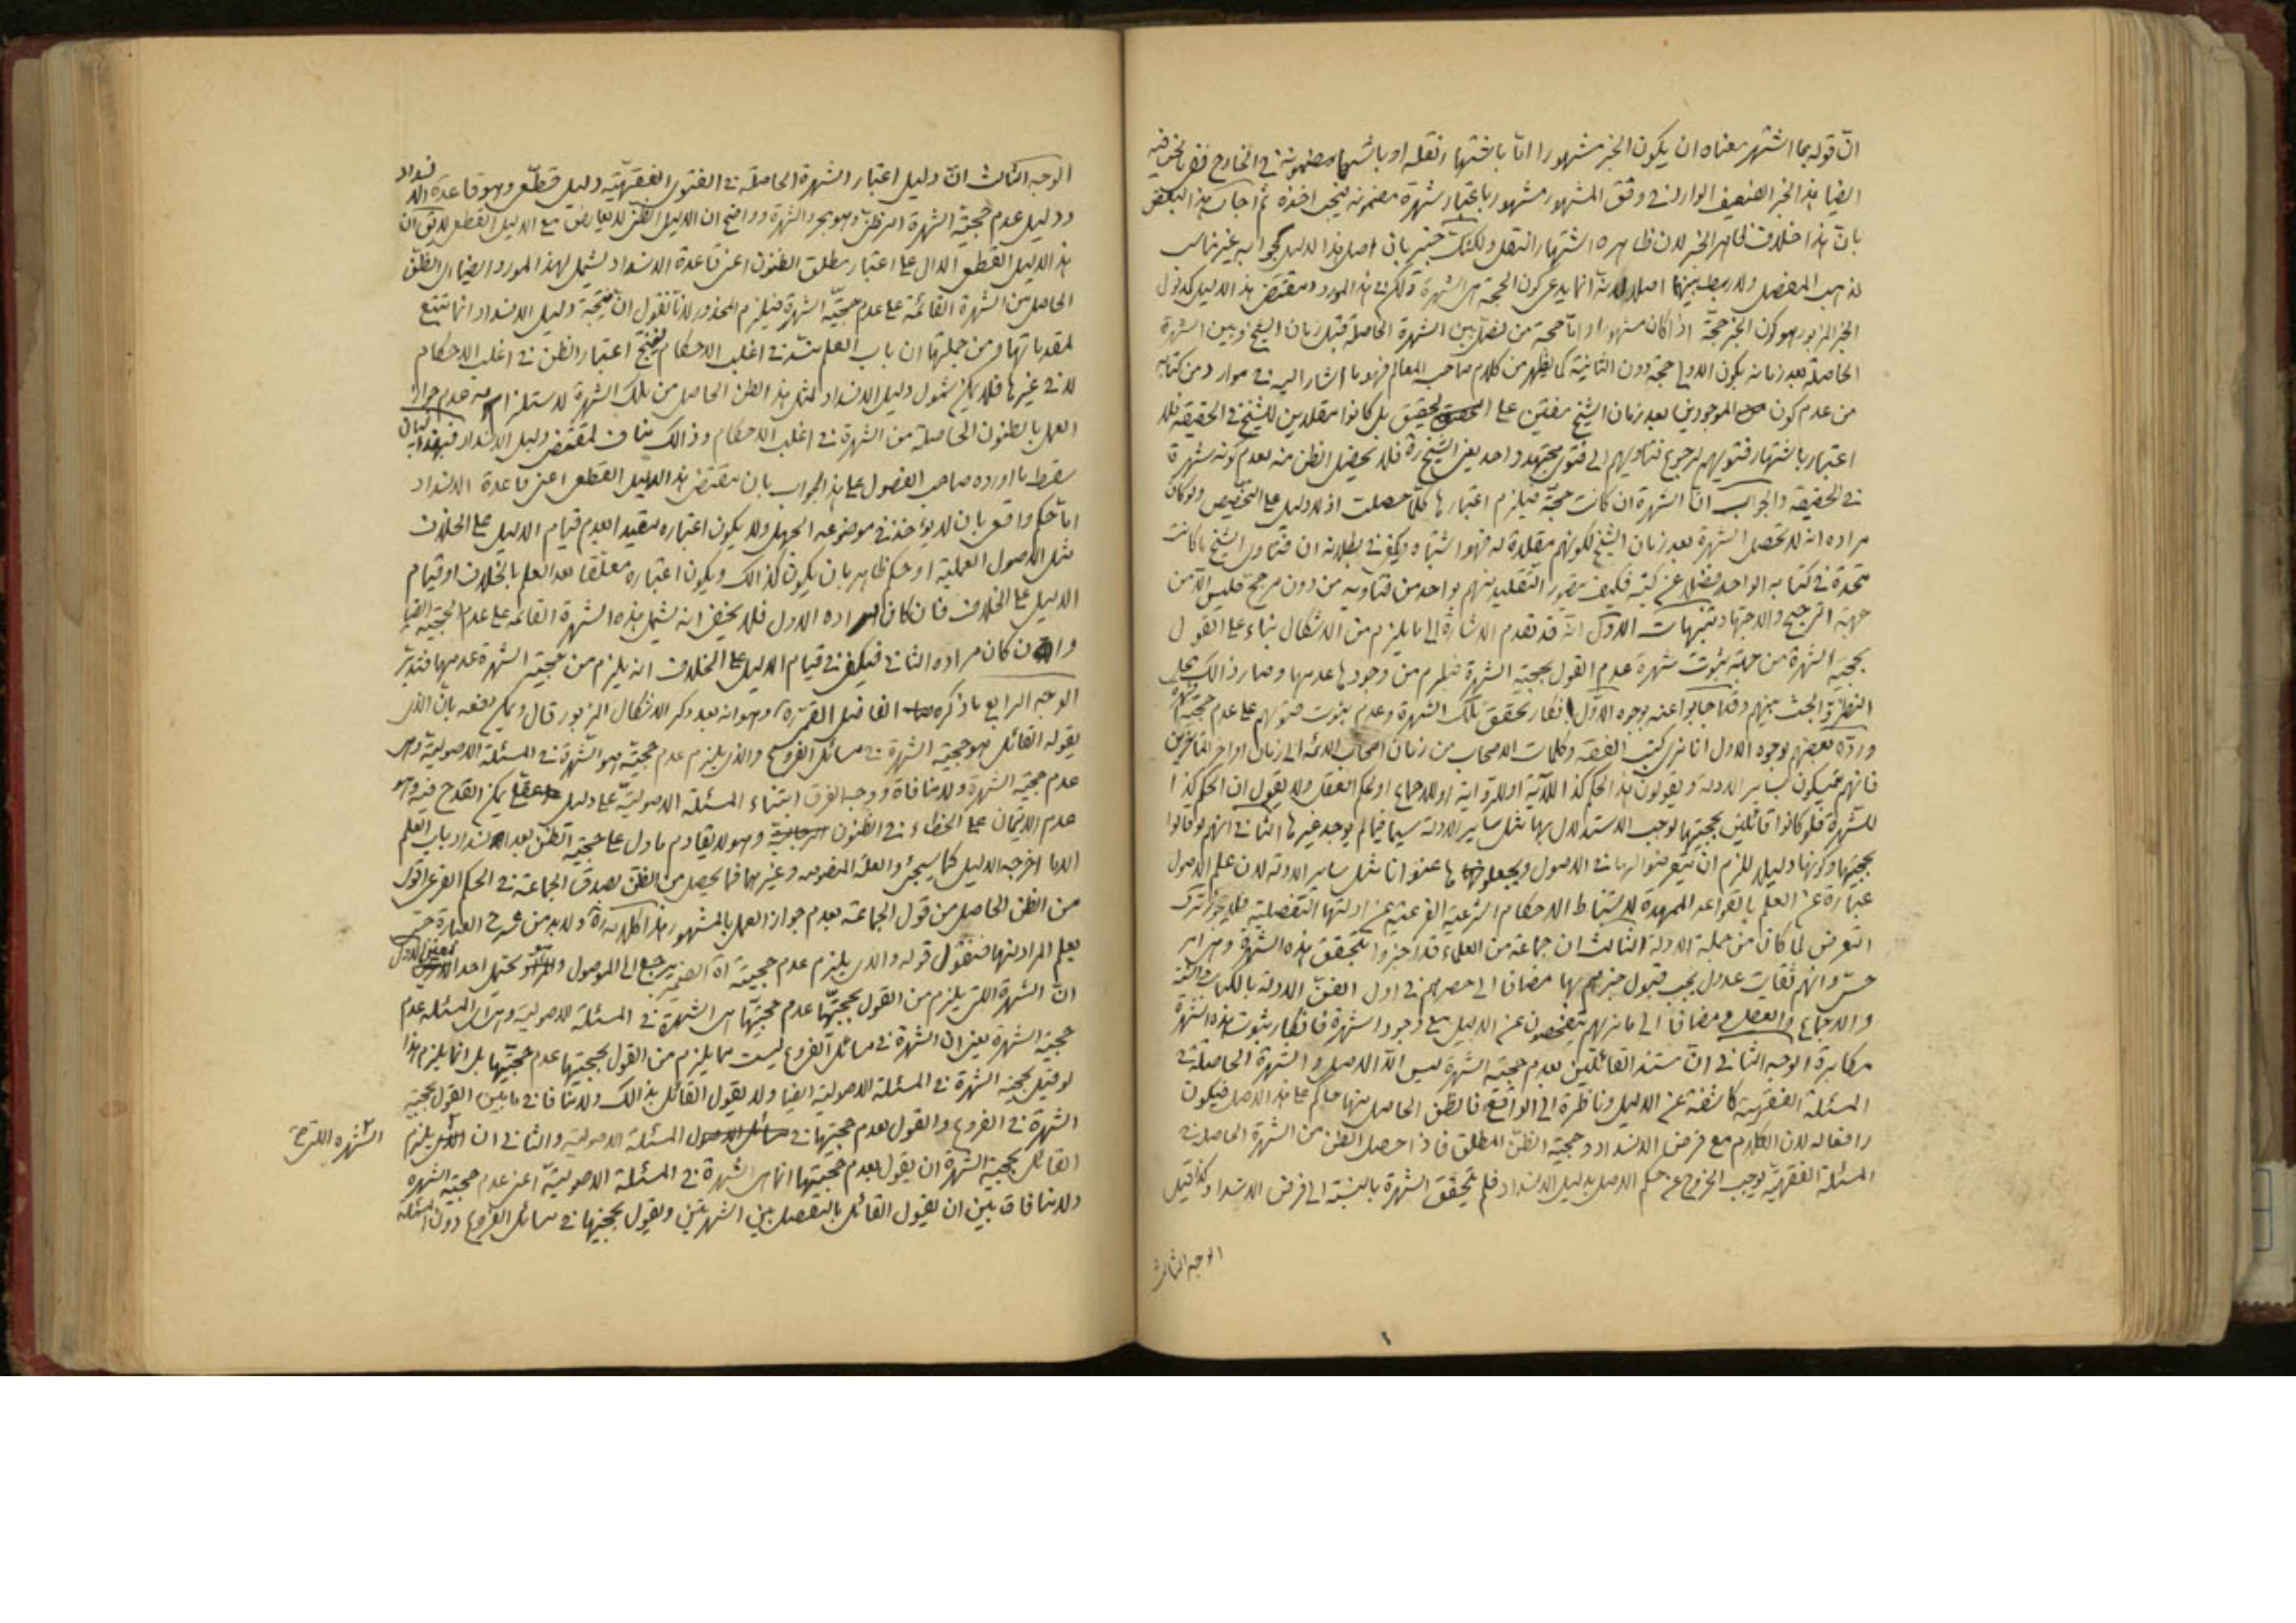 انّ قوله بما اشتهر معناه ان يكون الخبر مشهورا امّا باشتهار نقله او باشتهار مضمونه في الخارج ففى ما نحن فيه
ايضا هذا الخبر الضعيف الوارد في وفق المشهور مشهور باعتبار شهرة مضمونه فيجب اخذه ثم اجاب هذا البعض
بانّ هذا خلاف ظاهر الخبر لان ظاهره اشتهار النقل ولكنك خبير بان اصل هذا الدليل وجوابه غير مناسب
لمذهب المفصل ولا ربط بينهما اصلا لانه انما يدعى كون الحجة هى الشهرة ولكن في هذا المورد ومقتضى هذا الدليل كدليل
الخبر المزبور هو كون الخبر حجّة اذا كان مشهورا وامّا حجة من فصّل بين الشهرة الحاصلة قبل زمان الشيخ وبين الشهرة
الحاصلة بعد زمانه بكون الاولى حجة دون الثانية كما يظهر من كلام صاحب المعالم فهو ما اشار اليه في موارد من كتابه
من عدم كون الموجودين بعد زمان الشيخ مفتين على التحقيق بل كانوا مقلدين للشيخ في الحقيقة فلا
اعتبار باشتهار فتويهم لرجوع فتاويهم الى فتوى مجتهد واحد يعنى الشيخ ره فلا يحصل الظن منه بعدم كونه شهرة
في الحقيقة والجواب انّ الشهرة ان كانت حجّة فيلزم اعتبارها كلّما حصلت اذ لا دليل على التخصيص ولو كان
مراده انه لا تحصل الشهرة بعد زمان الشيخ لكونهم مقلدة له فهو اشتباه ويكفى في بطلانه ان فتاوى الشيخ ما كانت
متحدة في كتابه الواحد فضلا عن كتبه فكيف يتصور التقليد منهم بواحد من فتاويه من دون مرجح فليس الّا من
جهة الترجيح والاجتهاد تنبيهات الاوّل انّه قد تقدم الاشارة الى ما يلزم من الاشكال بناء على القول
بحجيّة الشهرة من جهة ثبوت شهرة عدم القول بحجية الشهرة فيلزم من وجودها عدمها وصار ذالك محل
النظر والبحث بينهم وقد اجابوا عنه بوجوه الاوّل انكار تحقق تلك الشهرة وعدم ثبوت فتويهم على عدم حجيّة الشهرة
وردّه بعضهم بوجوه الاول انا نرى كتب الفقه وكلمات الاصحاب من زمان اصحاب الائمه الى زمان اواخر المتاخرين
فانهم يتمسكون بساير الادلة ويقولون هذا الحكم كذا للآية او للرواية او للاجماع او لحكم العقل ولا يقول ان الحكم كذا
للشهرة فلو كانوا قائلين بحجيتها لوجب الاستدلال بها مثل ساير الادلة سيما فيما لم يوجد غيرها الثاني انهم لو قالوا
بحجيتها وكونها دليلا للزم ان يتعرضوا لها في الاصول ويجعلوا لها عنوانا مثل ساير الادلة لان علم الاصول
عبارة عن العلم بالقواعد الممهدة لاستنباط الاحكام الشرعية الفرعية عن ادلتها التفصيلية فلا يجوز ترك
التعرض لما كان من جملة الادلة الثالث ان جماعة من العلماء قد اخبروا بتحقق هذه الشهرة وهى امر
حسّى وانهم ثقات عدول يجب قبول خبرهم بها مضافا الى حصرهم في اول الفقه الادلة بالكتاب والسنة
والاجماع والعقل ومضافا الى ما نريهم يتفحصون عن الدليل مع وجود الشهرة فانكار ثبوت هذه الشهرة
مكابرة الوجه الثاني انّ مستند القائلين بعدم حجية الشهرة ليس الّا الاصل والشهرة الحاصلة في
المسئلة الفقهية كاشفة عن الدليل وناظرة الى الواقع فالظن الحاصل منها حاكم على هذا الاصل فيكون
رافعا له لان الكلام مع فرض الانسداد وحجية الظن المطلق فاذا حصل الظن من الشهرة الحاصلة في
المسئلة الفقهية يوجب الخروج عن حكم الاصل بدليل الانسداد فلم تتحقق الشهرة بالنسبة الى فرض الانسداد كذا قيل
الوجه الثالث
الوجه الثالث انّ دليل اعتبار الشهرة الحاصلة في الفتوى الفقهيّة دليل قطعى وهو قاعدة الانسداد
ودليل عدم حجيّة الشهرة امر ظنى وهو مجرد الشهرة وواضح ان الدليل الظنى لا يعارض مع الدليل القطعى لا يق ان
هذا الدليل القطعى الدال على اعتبار مطلق الظنون اعنى قاعدة الانسداد يشمل لهذا المورد ايضا اى الظن
الحاصل من الشهرة القائمة على عدم حجيّة الشهرة فيلزم المحذور لانا نقول انّ نتيجة دليل الانسداد انما تتبع
لمقدماتها ومن جملتها ان باب العلم منسد في اغلب الاحكام فينتج اعتبار الظن في اغلب الاحكام
لا في غيرها فلا يمكن شمول دليل الانسداد لمثل هذا الظن الحاصل من تلك الشهرة لاستلزامه عدم جواز
العمل بالظنون الحاصلة من الشهرة في اغلب الاحكام وذالك مناف لمقتضى دليل الانسداد فبهذا البيان
سقط ما اورده صاحب الفصول على هذا الجواب بان مقتضى هذا الدليل القطعى اعنى قاعدة الانسداد
امّا حكم واقعى بان لا يؤخذ في موضوعه الجهل ولا يكون اعتباره مقيدا بعدم قيام الدليل على الخلاف
مثل الاصول العملية او حكم ظاهرى بان يكون كذالك ويكون اعتباره معلّقا بعد العلم بالخلاف او قيام
الدليل على الخلاف فان كان مراده الاول فلا يخفى انه يشمل هذه الشهرة القائمة على عدم الحجيّة ايضا
وان كان مراده الثاني فيكفى في قيام الدليل على الخلاف انه يلزم من حجيّة الشهرة عدمها فتدبّر
الوجه الرابع ما ذكره الفاضل القمى ره وهو انه بعد ذكر الاشكال المزبور قال ويمكن دفعه بان الذى
يقوله القائل هو حجية الشهرة في مسائل الفروع والذى يلزم عدم حجيّته هو الشهرة في المسئلة الاصولية وهى
عدم حجية الشهرة ولا منافاة ووجه الفرق ابتناء المسئلة الاصوليّة على دليل عقلى يمكن القدح فيه وهو
عدم الايتمان على الخطاء في الظنون وهو لا يقاوم ما دل على حجيّة الظن بعد انسداد باب العلم
الا ما اخرجه الدليل كما سيجئ والعلّة المنصوصه وغيرهما فما يحصل من الظن بصدق الجماعة في الحكم الفرعى اقوى
من الظن الحاصل من قول الجماعة بعدم جواز العمل بالمشهور هذا كلامه ره ولا بد من شرح العبارة حتى
يعلم المراد منها فنقول قوله والذى يلزم عدم حجيته آه الضمير يرجع الى الموصول والمراد يحتمل احد المعنيين الاول
انّ الشهرة اللتى يلزم من القول بحجيّتها عدم حجيّتها هى الشهرة في المسئلة الاصولية وهى المسئلة عدم
حجية الشهرة يعنى ان الشهرة في مسائل الفروع ليست مما يلزم من القول بحجيتها عدم حجيّتها بل انما يلزم هذا
لو قيل بحجية الشهرة في المسئلة الاصولية ايضا ولا يقول القائل بذالك ولا منافاة ما بين القول بحجية
الشهرة في الفروع والقول بعدم حجيتها في المسئلة الاصولية والثاني ان الذى يلزم
الشهرة اللتى
القائل بحجية الشهرة ان يقول بعدم حجيّتها انما هى الشهرة في المسئلة الاصوليّة اعنى عدم حجية الشهره
ولا منافاة بين ان يقول القائل بالتفصيل بين الشهرتين ويقول بحجيتها في مسائل الفروع دون المسئلة